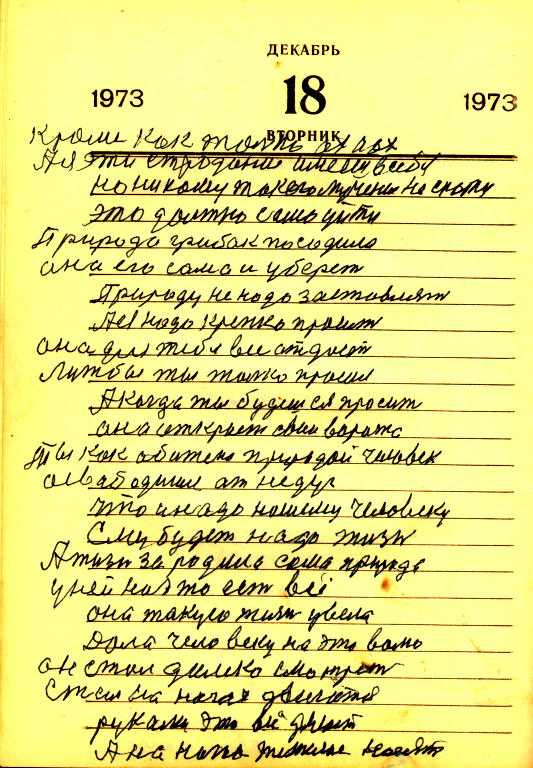 ДЕКАБРЬ
1973 18 1973
ВТОРНИК
Кроме как
А я эти страдания имею в себе
но никому такого мучения не
это должно само уйти
Природа грибок посадила
она его сама и уберет
Природу не надо заставлят
Ая надо крепко просит
она для тебя все отдаст
ты толко проси
А когда ты будеш ея просит
она откроет свои варота
Ты как абижено природай человек
ат недуг
что и надо нашему человеку
Ему будет надо жизн
А жизн за родила сама прирда
уней на это ест всё
она такую жизн увела
Дала человеку на это
он стал далеко смотрет
Стал на ногах двигатся
руками это всё делат
А на нагах носит